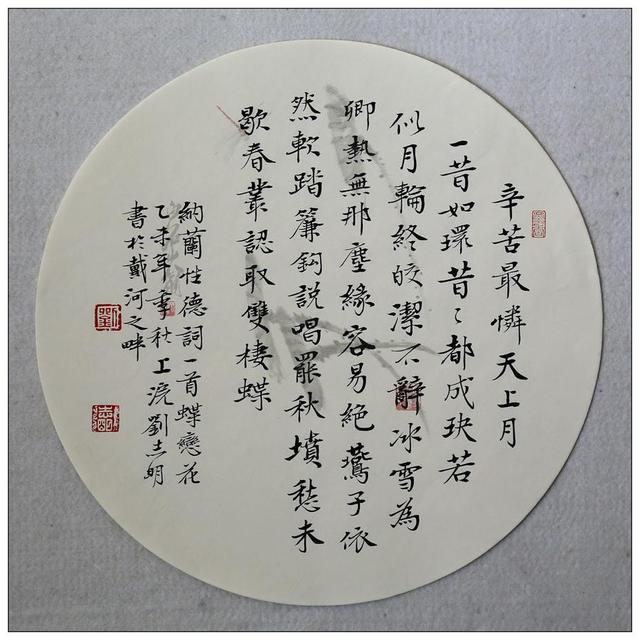 辛苦最憐天上月
一昔如環昔〻都成玦若
似月輪終皎潔不辭冰雪為
卿熱無那塵緣容易絕鷰子依
然軟踏簾鈎說唱罷秋墳愁未
歇春叢認取雙棲蝶
納蘭性德詞一首蝶戀花
乙未年季秋上浣劉志明
書於戴河之畔
劉